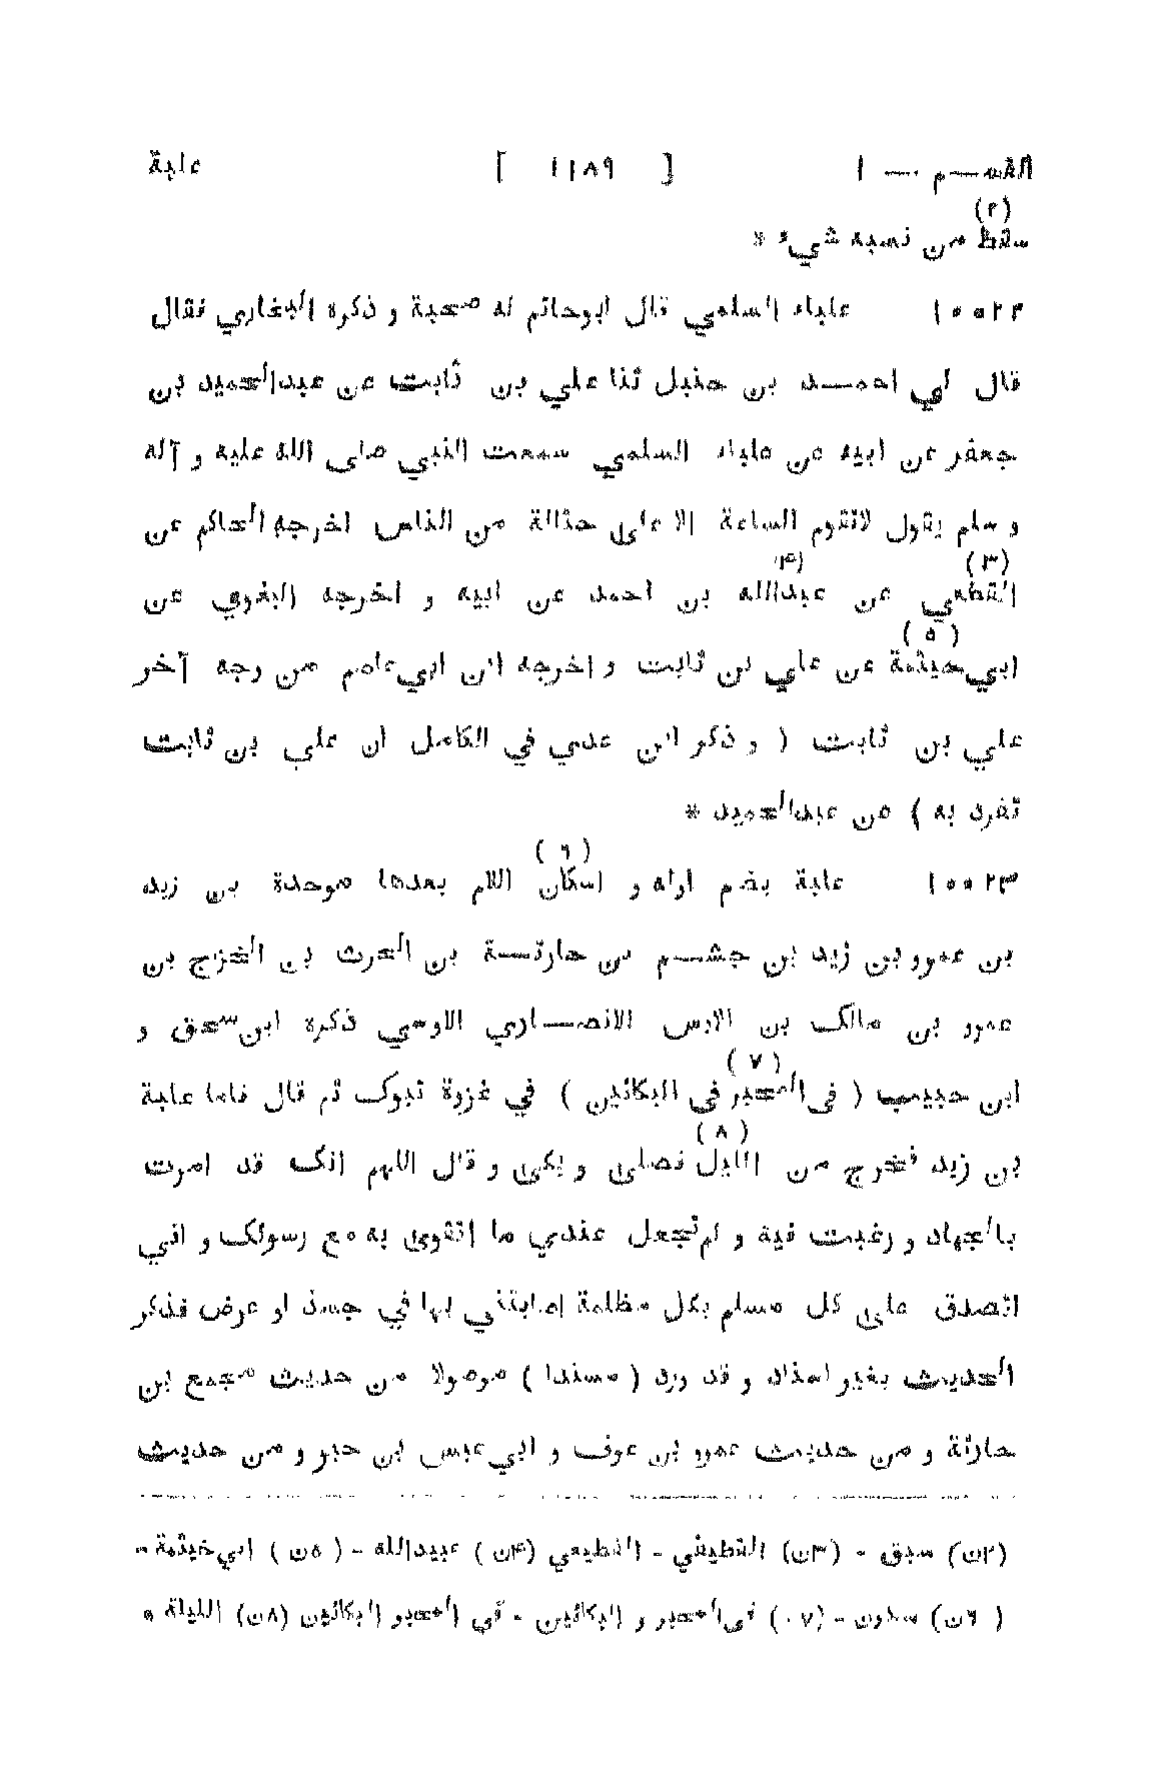 القسم — ا [ ١١٨٩ ] علبة
(٢)
سقط من نسبه شيء *
١٠٠٢٢ علباء السلمي قال ابوحاتم له صحبة و ذكره البخاري فقال
قال لي احمد بن حنبل ثنا علي بن ثابت عن عبدالحميد بن
جعفر عن ابيه عن علباء السلمي سمعت النبي صلى الله عليه و آله
و سلم يقول لاتقوم الساعة الا على حثالة من الناس اخرجه الحاكم عن
(٣) (۴)
القطعي عن عبدالله بن احمد عن ابيه و اخرجه البغوي عن
( ٥ )
ابي حيثمة عن علي بن ثابت و اخرجه ابن ابي عاصم من وجه آخر
علي بن ثابت ( و ذكر ابن عدي في الكامل ان علي بن ثابت
تفرد به ) عن عبدالحميد *
( ٦ )
١٠٠٢٣ علبة بضم اوله و اسكان اللام بعدها موحدة بن زيد
بن عمرو بن زيد بن جشم بن حارثة بن الحرث بن الخزرج بن
عمرو بن مالك بن الاوس الانصاري الاوسي ذكره ابن اسحق و
( ٧ )
ابن حبيب ( فى المحبر فى البكائين ) في غزوة تبوك ثم قال فاما علبة
( ٨ )
بن زيد فخرج من الليل فصلى و بكى و قال اللهم انك قد امرت
بالجهاد و رغبت فيه و لم تجعل عندي ما اتقوى به مع رسولك و اني
اتصدق على كل مسلم بكل مظلمة اصابتني بها في جسد او عرض فذكر
الحديث بغير اسناد و قد ورد ( مسندا ) موصولا من حديث مجمع بن
حارثة و من حديث عمرو بن عوف و ابي عبس ابن حبر و من حديث
(٢ن) سبق - (٣ن) القطيفي - القطيعي (۴ن) عبيدالله - (٥ن) ابي خيثمة -
(٦ن) سكون - (٧٠) فى المحبر و البكائين - في المحبر البكائين (٨ن) الليلة *